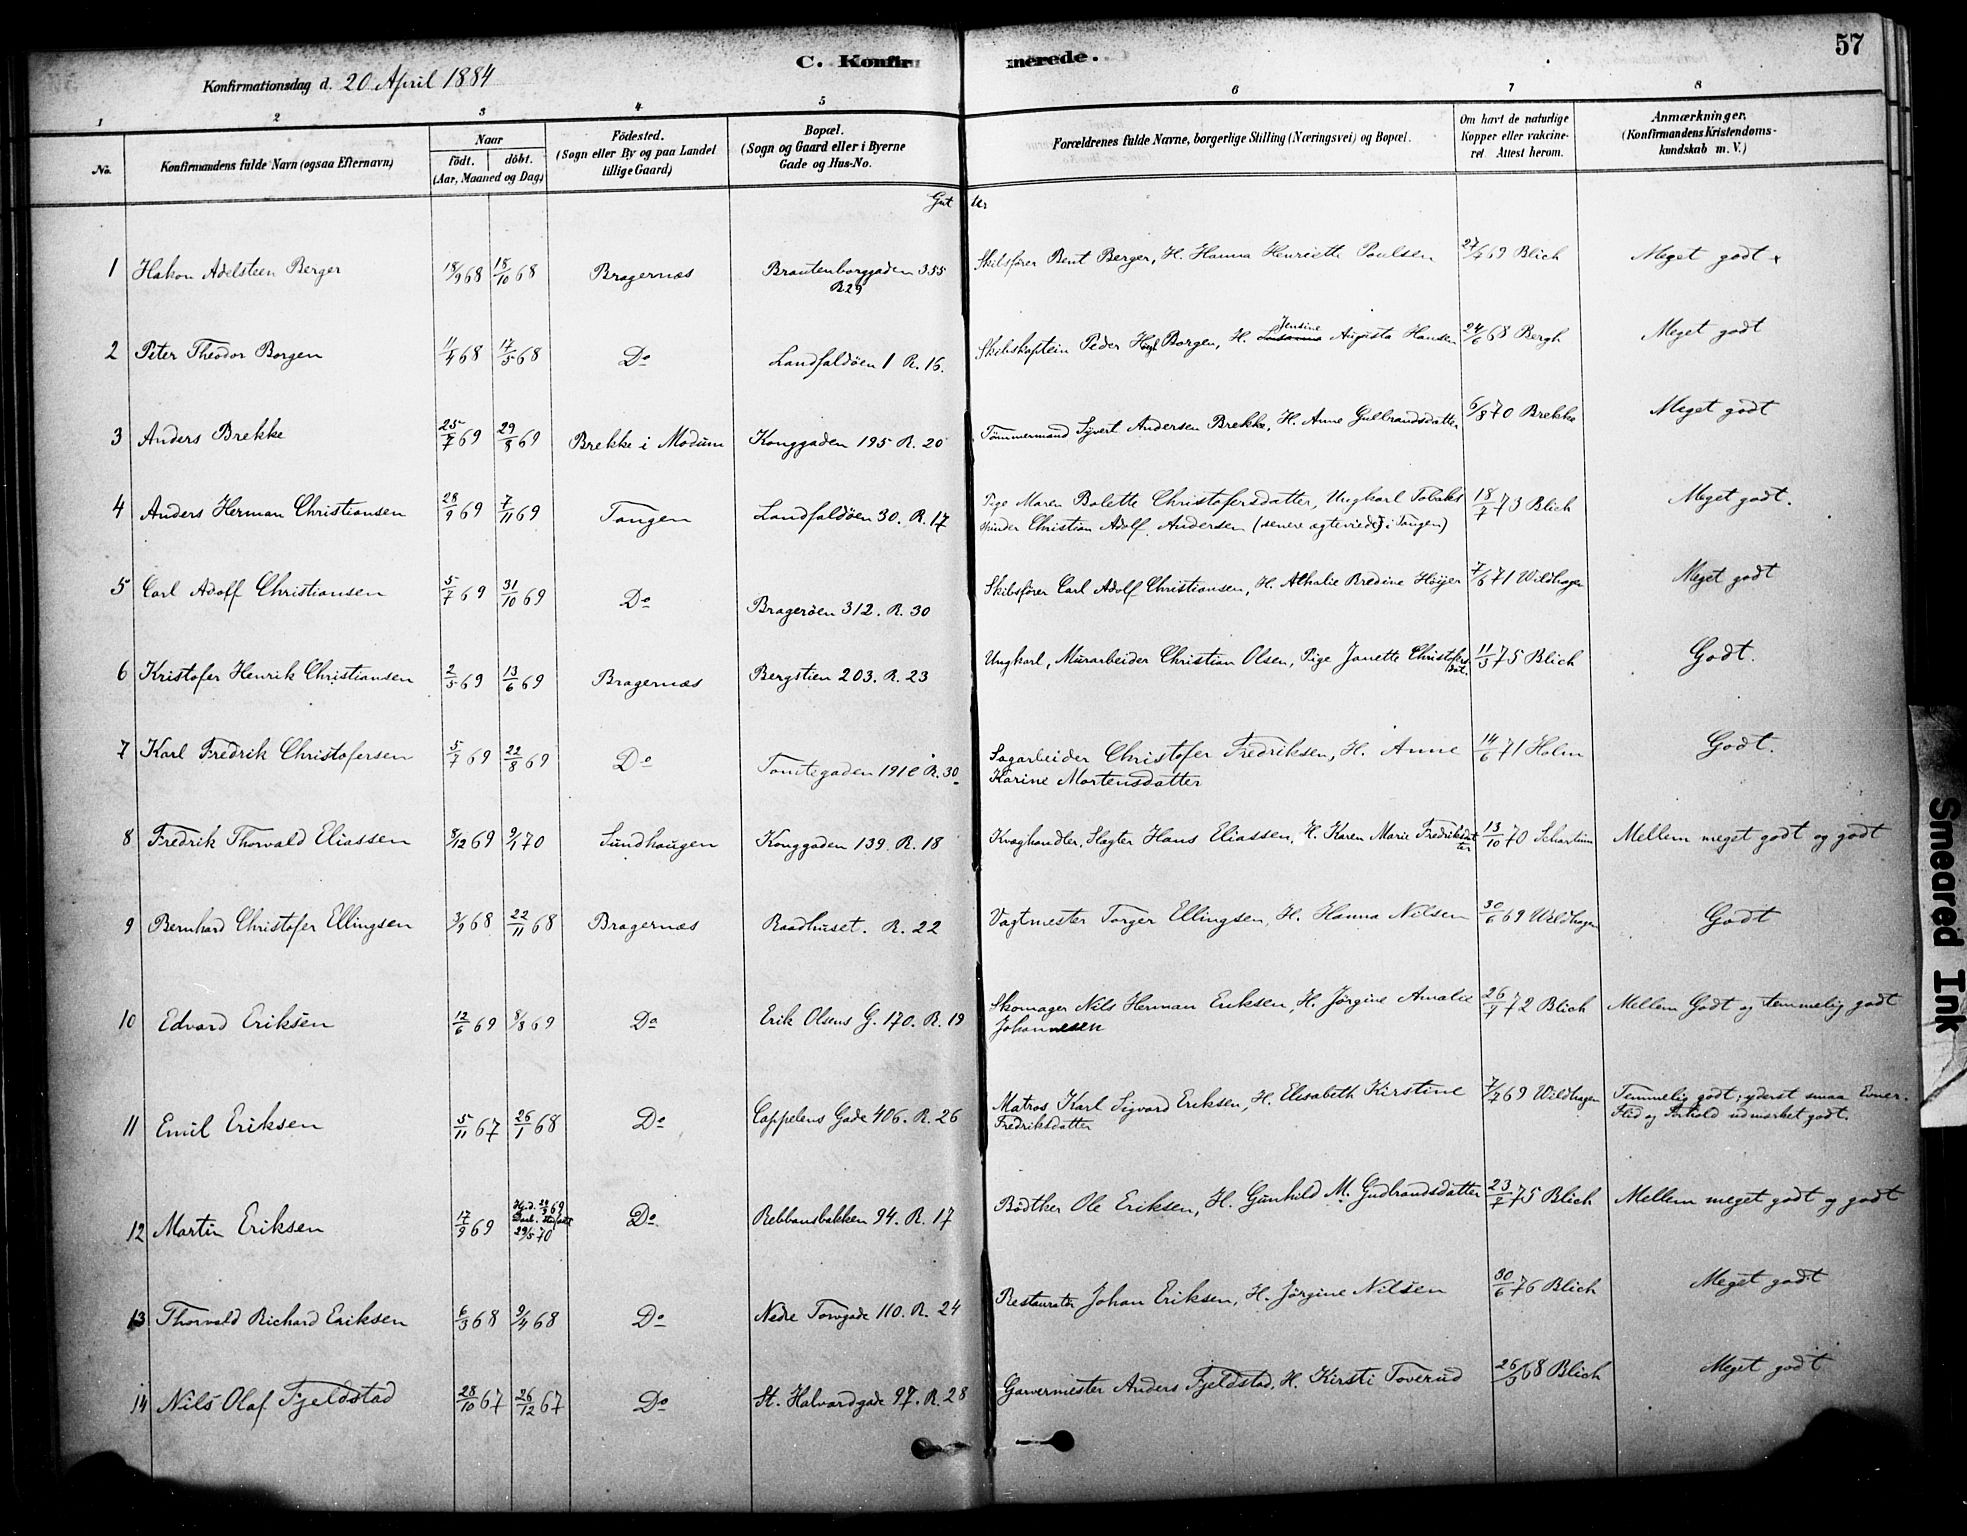 57
C. Konfirmerede.
Konfirmationsdag d. 20 April 1884
1 2 3 4 5 6 7 8
No. Konfirmandens fulde Navn (ogsaa Efternavn) Naar födt. döbt. (Aar, Maaned og Dag) Födested. (Sogn eller By og paa Landet tillige Gaard) Bopæl. (Sogn og Gaard eller i Byerne Gade og Hus-No. Forældrenes fulde Navne, borgerlige Stilling (Næringsvei) og Bopæl. Om havt de naturlige Kopper eller vakcineret. Attest herom. Anmærkninger. (Konfirmandens Kristendomskundskab m. V.)
Gutter
1 Hakon Adelsteen Berger 18/9 68 18/10 68 Bragernæs Brautenborggaden 355 R 29 Skibsfører Bent Berger, H. Hanna Henriette Poulsen 27/9 69 Blich Meget godt
2 Peter Theodor Borgen 11/4 68 17/5 68 Do Landfaldöen 1 R. 16. Skibskaptein Peder Borgen, H. Jensine Augusta Hansen 24/6 68 Bergh Meget godt
3 Anders Brekke 25/7 69 29/8 69 Brekke i Modum Konggaden 195 R. 20 Tømmermand Syvert Andersen Brekke, H. Anne Gulbrandsdatter 6/8 70 Brekke Meget godt
4 Anders Herman Christiansen 28/9 69 7/11 69 Tangen Landfaldöen 30. R. 17 Pige Maren Bolette Christofersdatter, Ungkarl Tobaks
spinder Christian Adolf Andersen (senere ægteviede i Tangen) 18/7 73 Blich Meget godt.
5 Carl Adolf Christiansen 5/7 69 31/10 69 Do Bragerøen 312. R. 30 Skibsfører Carl Adolf Christiansen, H. Athalie Bredine Höyer 7/6 71 Wildhagen Meget godt
6 Kristofer Henrik Christiansen 2/5 69 13/6 69 Bragernæs Bergstien 203. R. 23 Ungkarl, Murarbeider Christian Olsen, Pige Janette Christofersdat. 11/5 75 Blich Godt.
7 Karl Fredrik Christofersen 5/7 69 22/8 69 Do Tomtegaden 191 R. 30 Sagarbeider Christofer Fredriksen, H. Anne
Karine Mortensdatter 14/6 71 Holm Godt.
8 Fredrik Thorvald Eliassen 8/12 69 9/1 70 Sundhaugen Konggaden 139. R. 18 Kvæghandler, Slagter Hans Eliassen, H. Karen Marie Fredriksdatter 13/10 70 Schartum Mellem meget godt og godt
9 Bernhard Christofer Ellingsen 3/9 68 22/11 68 Bragernæs Raadhuset. R. 22 Vagtmester Torger Ellingsen, H. Hanna Nilsen 30/6 69 Wildhagen Godt
10 Edvard Eriksen 12/6 69 8/8 69 Do Erik Olsens G. 170. R. 19 Skomager Nils Herman Eriksen, H. Jørgine Amalie
Johannesen 26/9 72 Blich Mellem Godt og temmelig godt
11 Emil Eriksen 5/11 67 26/1 68 Do Cappelens Gade 406. R. 26 Matros Karl Sigvard Eriksen, H. Elisabeth Kirstine
Fredriksdatter 7/7 69 Wildhagen Temmelig godt; yderst smaa Evner.
Flid og Forhold udmærket godt.
12 Martin Eriksen 17/9 69 Hjd. 69 29/5 70 Do Rebbansbakken 94. R. 17 Bødtker Ole Eriksen, H. Gunhild M. Gudbrandsdatter 23/7 75 Blich Mellem meget godt og godt
13 Thorvald Richard Eriksen 6/3 68 9/4 68 Do Nedre Torvgade 110. R. 24 Restauratør Johan Eriksen, H. Jørgine Nilsen 30/6 76 Blich Meget godt
14 Nils Olaf Fjeldstad 28/10 67 26/12 67 Do St. Halvardgade 97. R. 28 Garvermester Anders Fjeldstad, H. Kirsti Toverud 26/5 68 Blich Meget godt
Smeared Ink